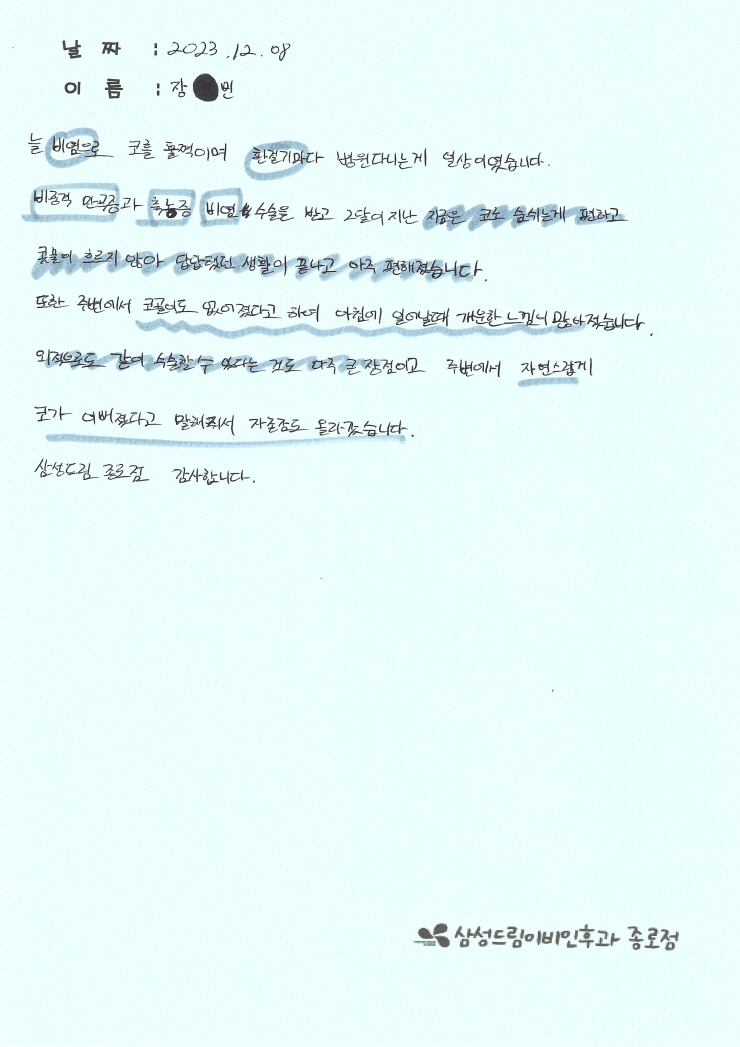 날 짜 : 2023.12.08
이 름 : 장 민
늘 비염으로 코를 훌쩍이며 환절기마다 병원다니는게 일상이였습니다.
비중격 만곡증과 축농증 비염 수술을 받고 2달이 지난 지금은 코로 숨쉬는게 편하고
콧물이 흐르지 않아 답답했던 생활이 끝나고 아주 편해졌습니다.
또한 주변에서 코골이도 없어졌다고 하여 아침에 일어날때 개운한 느낌이 많아졌습니다.
외적으로도 같이 수술할 수 있다는 것도 아주 큰 장점이고 주변에서 자연스럽게
코가 이뻐졌다고 말해줘서 자존감도 올라갔습니다.
삼성드림 종로점 감사합니다.
삼성드림이비인후과 종로점